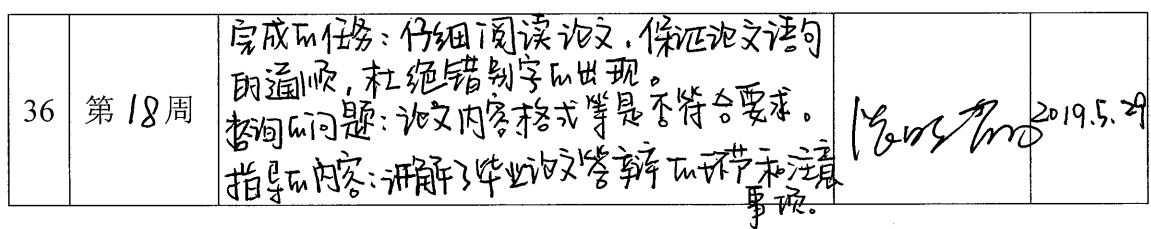 36
第18周
完成的任务：仔细阅读论文，保证论文语句
的通顺，杜绝错别字的出现。
咨询的问题：论文内容格式等是否符合要求。
指导的内容：讲解了毕业论文答辩的环节和注意
事项。
2019.5.29